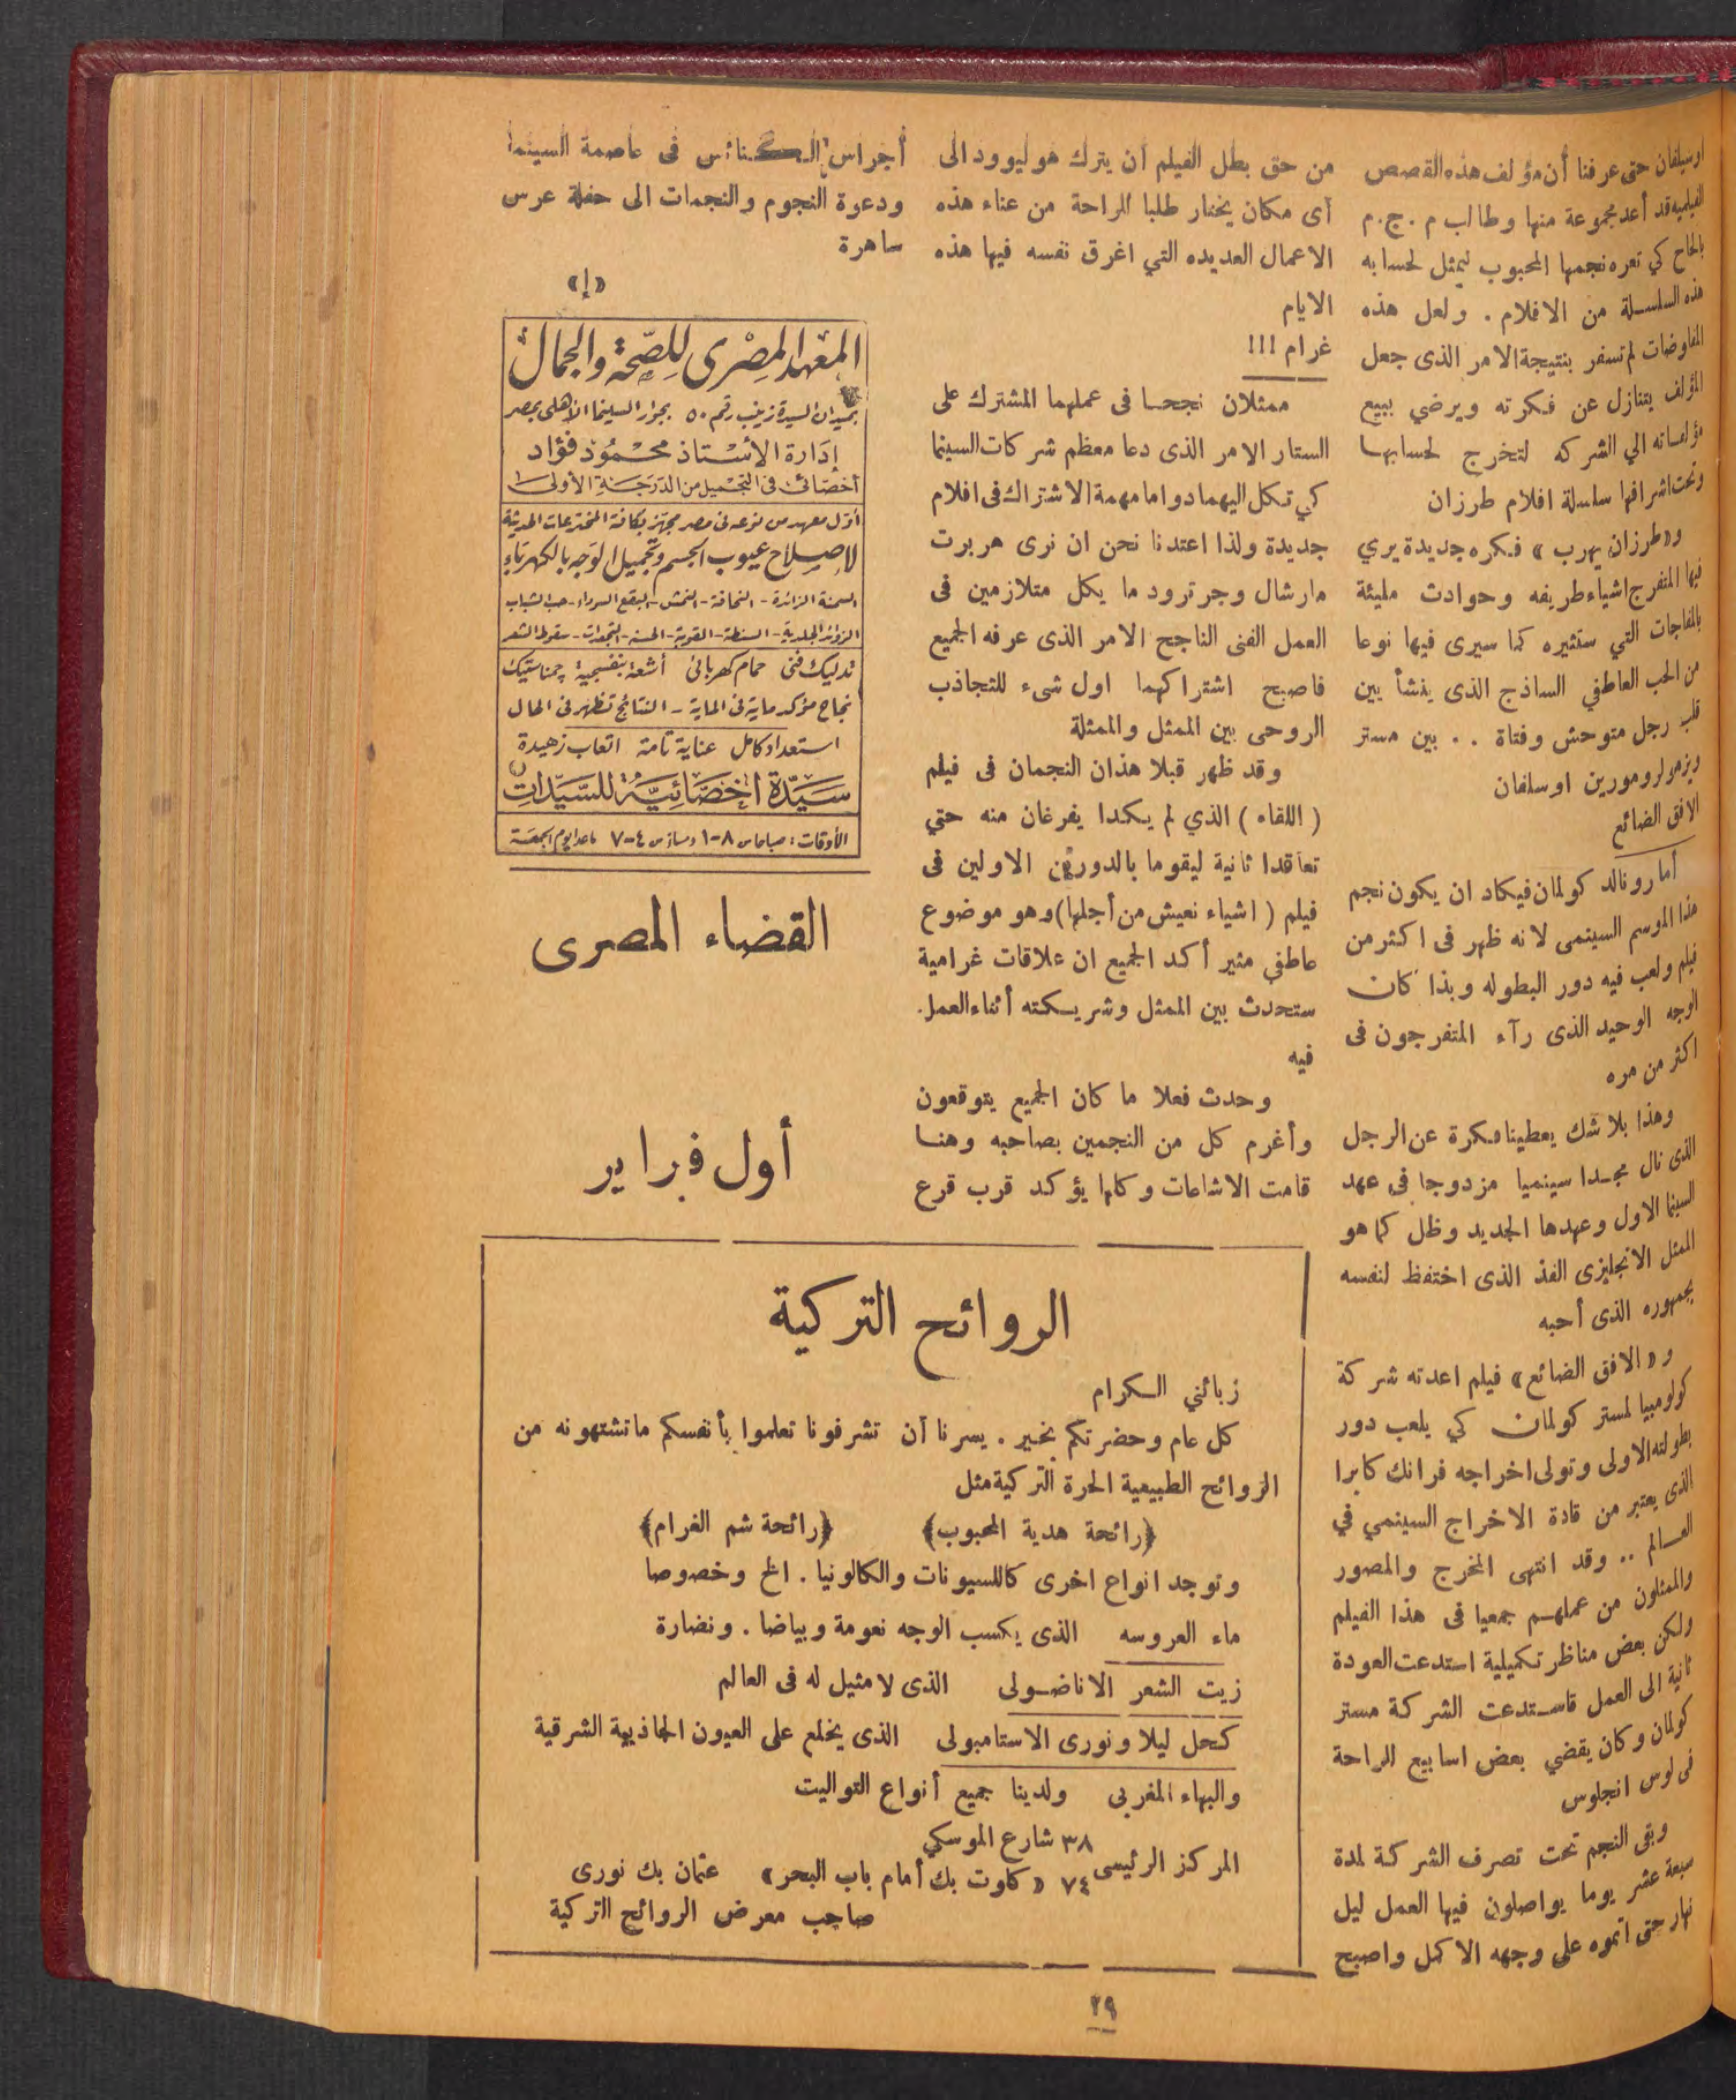 اوسيلفان حتى عرفنا أن مؤلف هذه القصص
الفيلميه قد أعد مجموعة منها وطالب م . ج . م
بالحاح كي تعره نجمها المحبوب ليمثل لحسابه
هذه السلسلة من الافلام . ولعل هذه
المفاوضات لم تسفر بنتيجة الامر الذى جعل
المؤلف يتنازل عن فكرته ويرضي ببيع
مؤلفاته الي الشركه لتخرج لحسابها
وتحت اشرافها سلسلة افلام طرزان
و«طرزان يهرب» فكره جديدة يري
فيها المتفرج اشياء طريفه وحوادث مليئة
بالمفاجات التي ستثيره كما سيرى فيها نوعا
من الحب العاطفي الساذج الذى ينشأ بين
قلب رجل متوحش وفتاة . . بين مستر
ويزمولر ومورين اوسلفان
الافق الضائع
أما رونالد كولمان فيكاد ان يكون نجم
هذا الموسم السينمى لانه ظهر فى اكثر من
فيلم ولعب فيه دور البطوله وبذا كان
الوجه الوحيد الذى رآء المتفرجون فى
اكثر من مره
وهذا بلا شك يعطينا فكرة عن الرجل
الذى نال مجدا سينميا مزدوجا فى عهد
السينما الاول وعهدها الجديد وظل كما هو
الممثل الانجليزى الفذ الذى احتفظ لنفسه
بجمهوره الذى أحبه
و«الافق الضائع» فيلم اعدته شركة
كولومبيا لمستر كولمان كي يلعب دور
بطولته الاولى وتولى اخراجه فرانك كابرا
الذى يعتبر من قادة الاخراج السينمي في
العالم .. وقد انتهى المخرج والمصور
والممثلون من عملهم جمعيا فى هذا الفيلم
ولكن بعض مناظر تكميلية استدعت العودة
ثانية الى العمل فاستدعت الشركة مستر
كولمان وكان يقضي بعض اسابيع الراحة
فى لوس انجلوس
وبقى النجم تحت تصرف الشركة لمدة
سبعة عشر يوما يواصلون فيها العمل ليل
نهار حتى اتموه على وجهه الاكمل واصبح
من حق بطل الفيلم أن يترك هوليوود الى
أى مكان يختار طلبا للراحة من عناء هذه
الاعمال العديده التي اغرق نفسه فيها هذه
الايام
غرام !!!
ممثلان نجحا فى عملهما المشترك على
الستار الامر الذى دعا معظم شركات السينما
كي تكل اليهما دواما مهمة الاشتراك فى افلام
جديدة ولذا اعتدنا نحن ان نرى هربرت
مارشال وجرترود ما يكل متلازمين فى
العمل الفنى الناجح الامر الذى عرفه الجميع
فاصبح اشتراكهما اول شىء للتجاذب
الروحى بين الممثل والممثلة
وقد ظهر قبلا هذان النجمان فى فيلم
( اللقاء ) الذي لم يكدا يفرغان منه حتي
تعاقدا ثانية ليقوما بالدورين الاولين فى
فيلم ( اشياء نعيش من أجلها ) وهو موضوع
عاطفي مثير أكد الجميع ان علاقات غرامية
ستحدث بين الممثل وشريكته أثناء العمل.
فيه
وحدث فعلا ما كان الجميع يتوقعون
وأغرم كل من النجمين بصاحبه وهنا
قامت الاشاعات وكلها يؤكد قرب قرع
أجراس الكنائس فى عاصمة السينما
ودعوة النجوم والنجمات الى حفلة عرس
ساهرة
«إ»
المعهد المصرى للصحة والجمال
بميدان السيدة زينب رقم ٥٠ بجوار السينما الأهلى بمصر
إدارة الأستاذ محمود فؤاد
أخصائى فى التجميل من الدرجة الأولى
أول معهد من نوعه فى مصر مجهز بكافة المخترعات الحديثة
لإصلاح عيوب الجسم وتجميل الوجه بالكهرباء
السمنة الزائدة - النحافة - النمش - البقع السوداء - حب الشباب
الزوائد الجلدية - السنطة - القوبة - الحسنة - التجعدات - سقوط الشعر
تدليك فنى حمام كهربائى أشعة بنفسجية چمناستيك
نجاح مؤكد ماية فى الماية - النتائج تظهر فى الحال
استعداد كامل عناية تامة اتعاب زهيدة
سيدة أخصائية للسيدات
الأوقات : صباحا من ٨-١ ومساء من ٤-٧ ماعدا يوم الجمعة
القضاء المصرى
أول فبراير
الروائح التركية
زبائني الكرام
كل عام وحضرتكم بخير . يسرنا أن تشرفونا تعلموا بأنفسكم ماتشتهونه من
الروائح الطبيعية الحرة التركية مثل
﴿رائحة هدية المحبوب﴾ ﴿رائحة شم الغرام﴾
وتوجد انواع اخرى كاللسيونات والكالونيا . الخ وخصوصا
ماء العروسه الذى يكسب الوجه نعومة وبياضا . ونضارة
زيت الشعر الاناضولى الذى لا مثيل له فى العالم
كحل ليلا ونورى الاستامبولى الذى يخلع على العيون الجاذبية الشرقية
والبهاء المغربى ولدينا جميع أنواع التواليت
المركز الرئيسى ٣٨ شارع الموسكي
٧٤ « كلوت بك أمام باب البحر» عثمان بك نورى
صاحب معرض الروائح التركية
٢٩